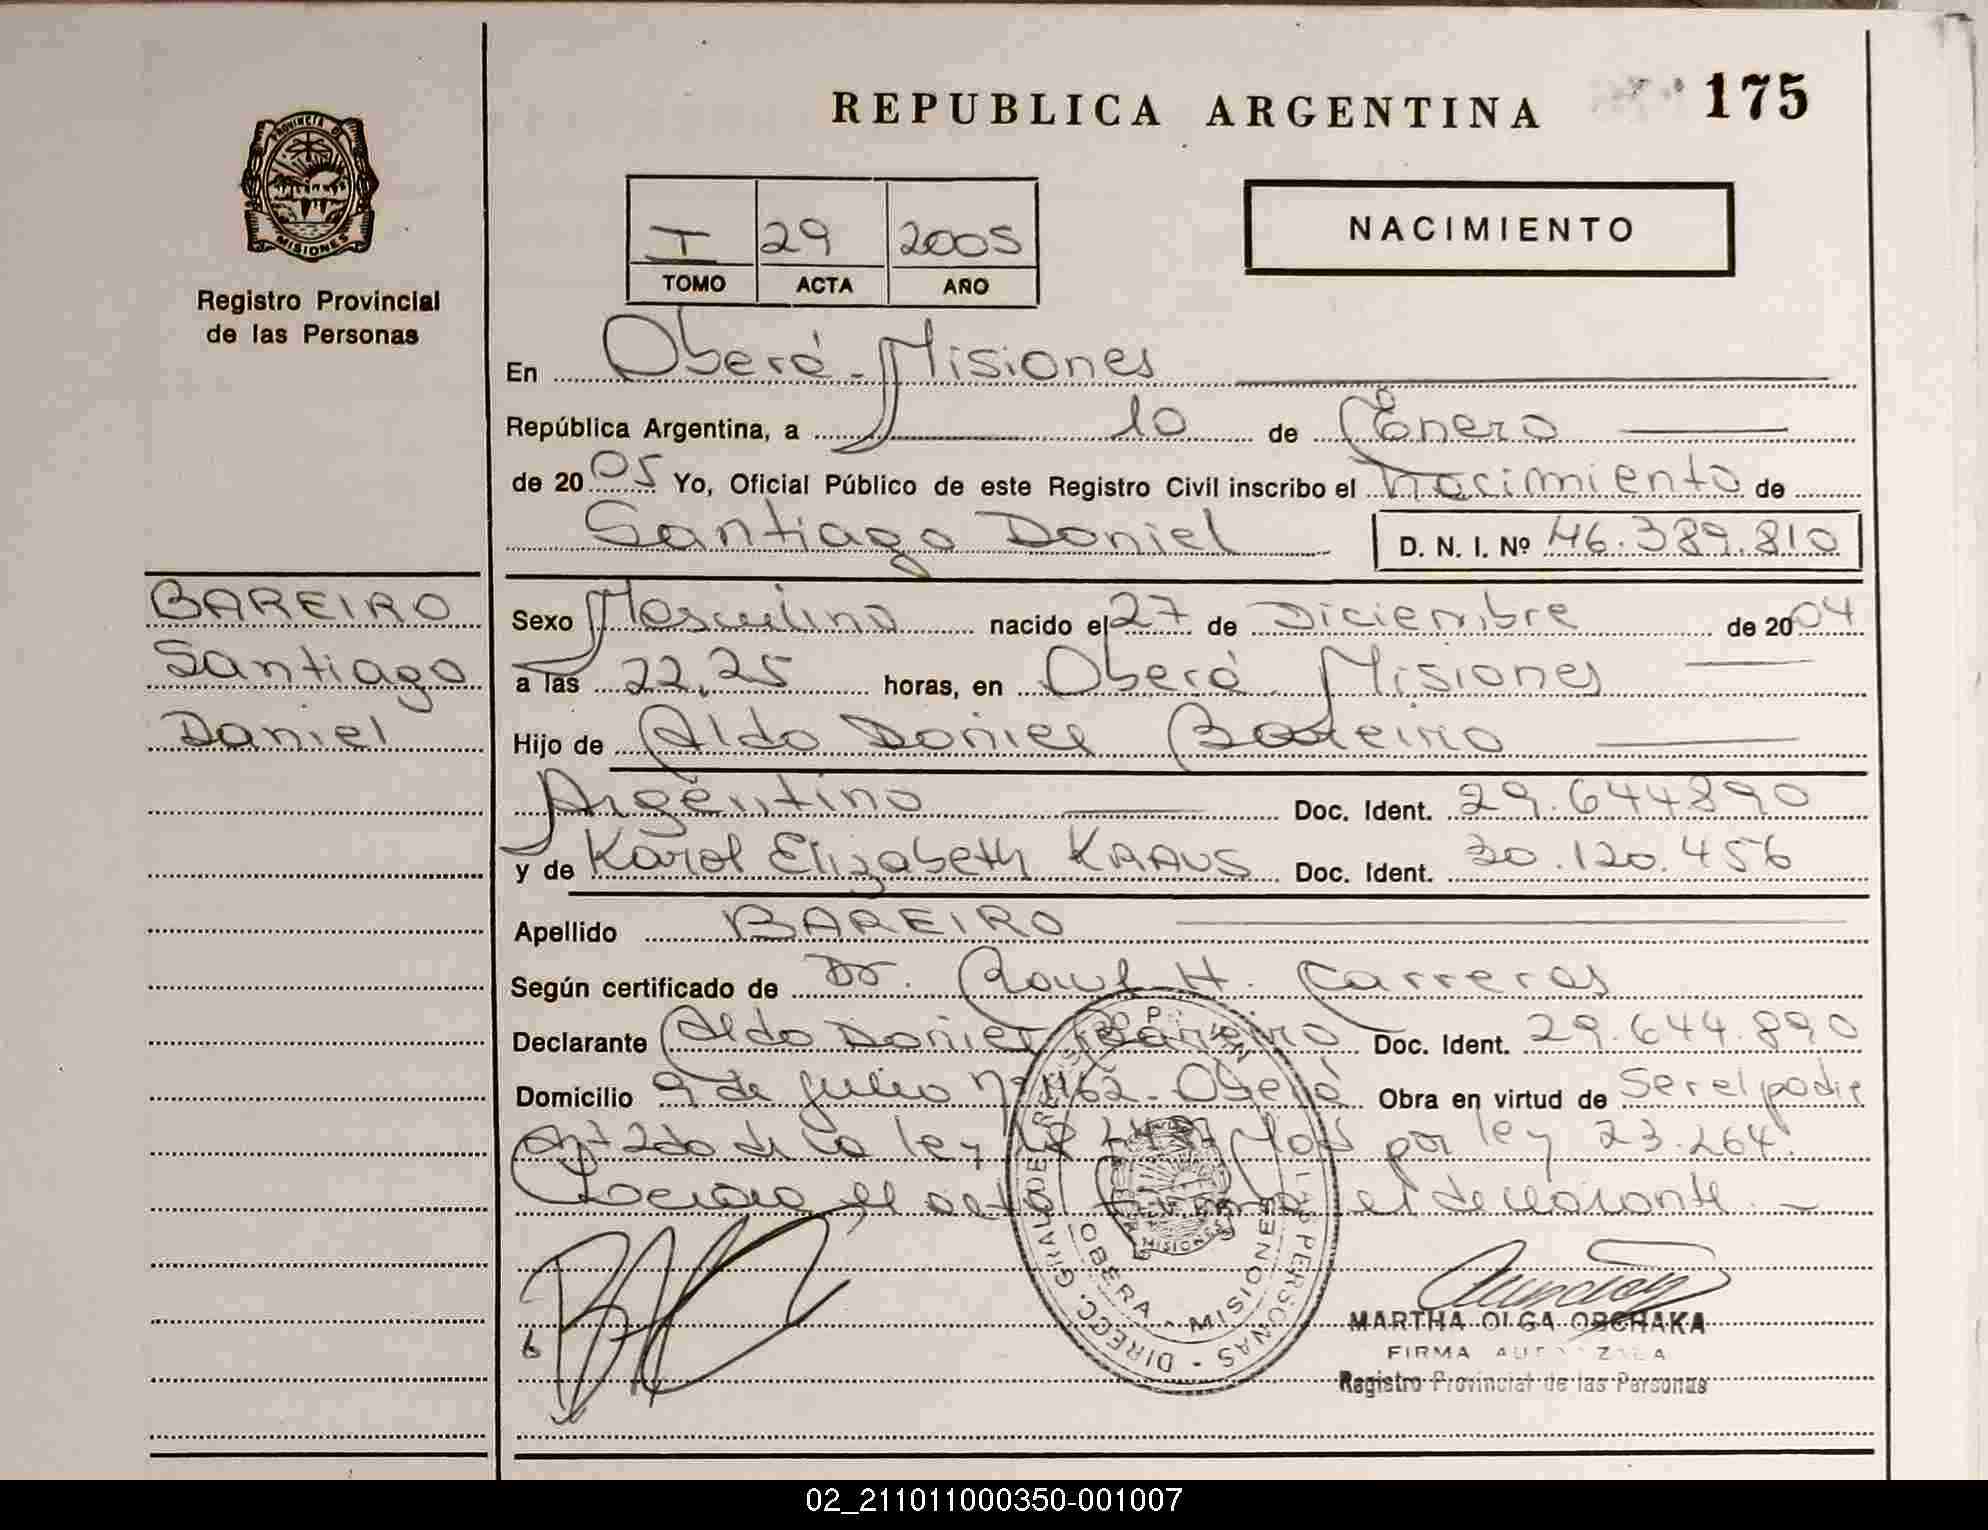 REPUBLICA ARGENTINA
175
PROVINCIA DE
MISIONES
Registro Provincial
de las Personas
I 29 2005
TOMO ACTA AÑO
NACIMIENTO
En Oberá - Misiones
República Argentina, a 10 de Enero
de 2005 Yo, Oficial Público de este Registro Civil inscribo el nacimiento de
Santiago Daniel D. N. I. Nº 46.389.810
BAREIRO
Santiago
Daniel
Sexo Masculino nacido el 27 de Diciembre de 2004
a las 22,25 horas, en Oberá Misiones
Hijo de Aldo Daniel Bareiro
Argentino Doc. Ident. 29.644890
y de Karol Elizabeth KRAUS Doc. Ident. 30.120.456
Apellido BAREIRO
Según certificado de Dr. Raul H. Carreras
Declarante Aldo Daniel Bareiro Doc. Ident. 29.644.890
Domicilio 9 de Julio Nº 1162 - Oberá Obra en virtud de Ser el padre
Art 2do de la ley por ley 23.264.
el acta el declarante. -
DIRECC. GRAL. DE LAS PERSONAS
OBERA - MISIONES
MISIONES
MARTHA OLGA OBCHAKA
FIRMA AUTORIZADA
Registro Provincial de las Personas
02_211011000350-001007